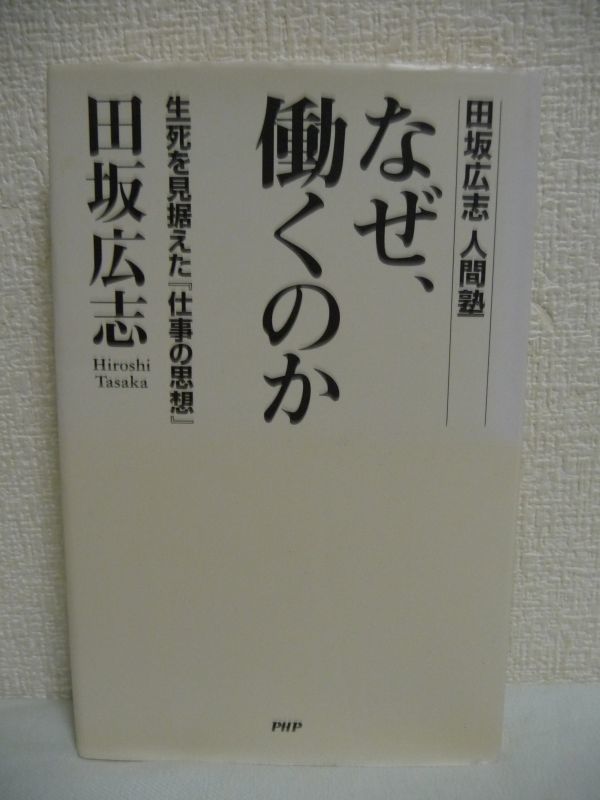 田坂広志 人間塾
なぜ、
働くのか
生死を見据えた『仕事の思想』
田坂広志
Hiroshi
Tasaka
PHP